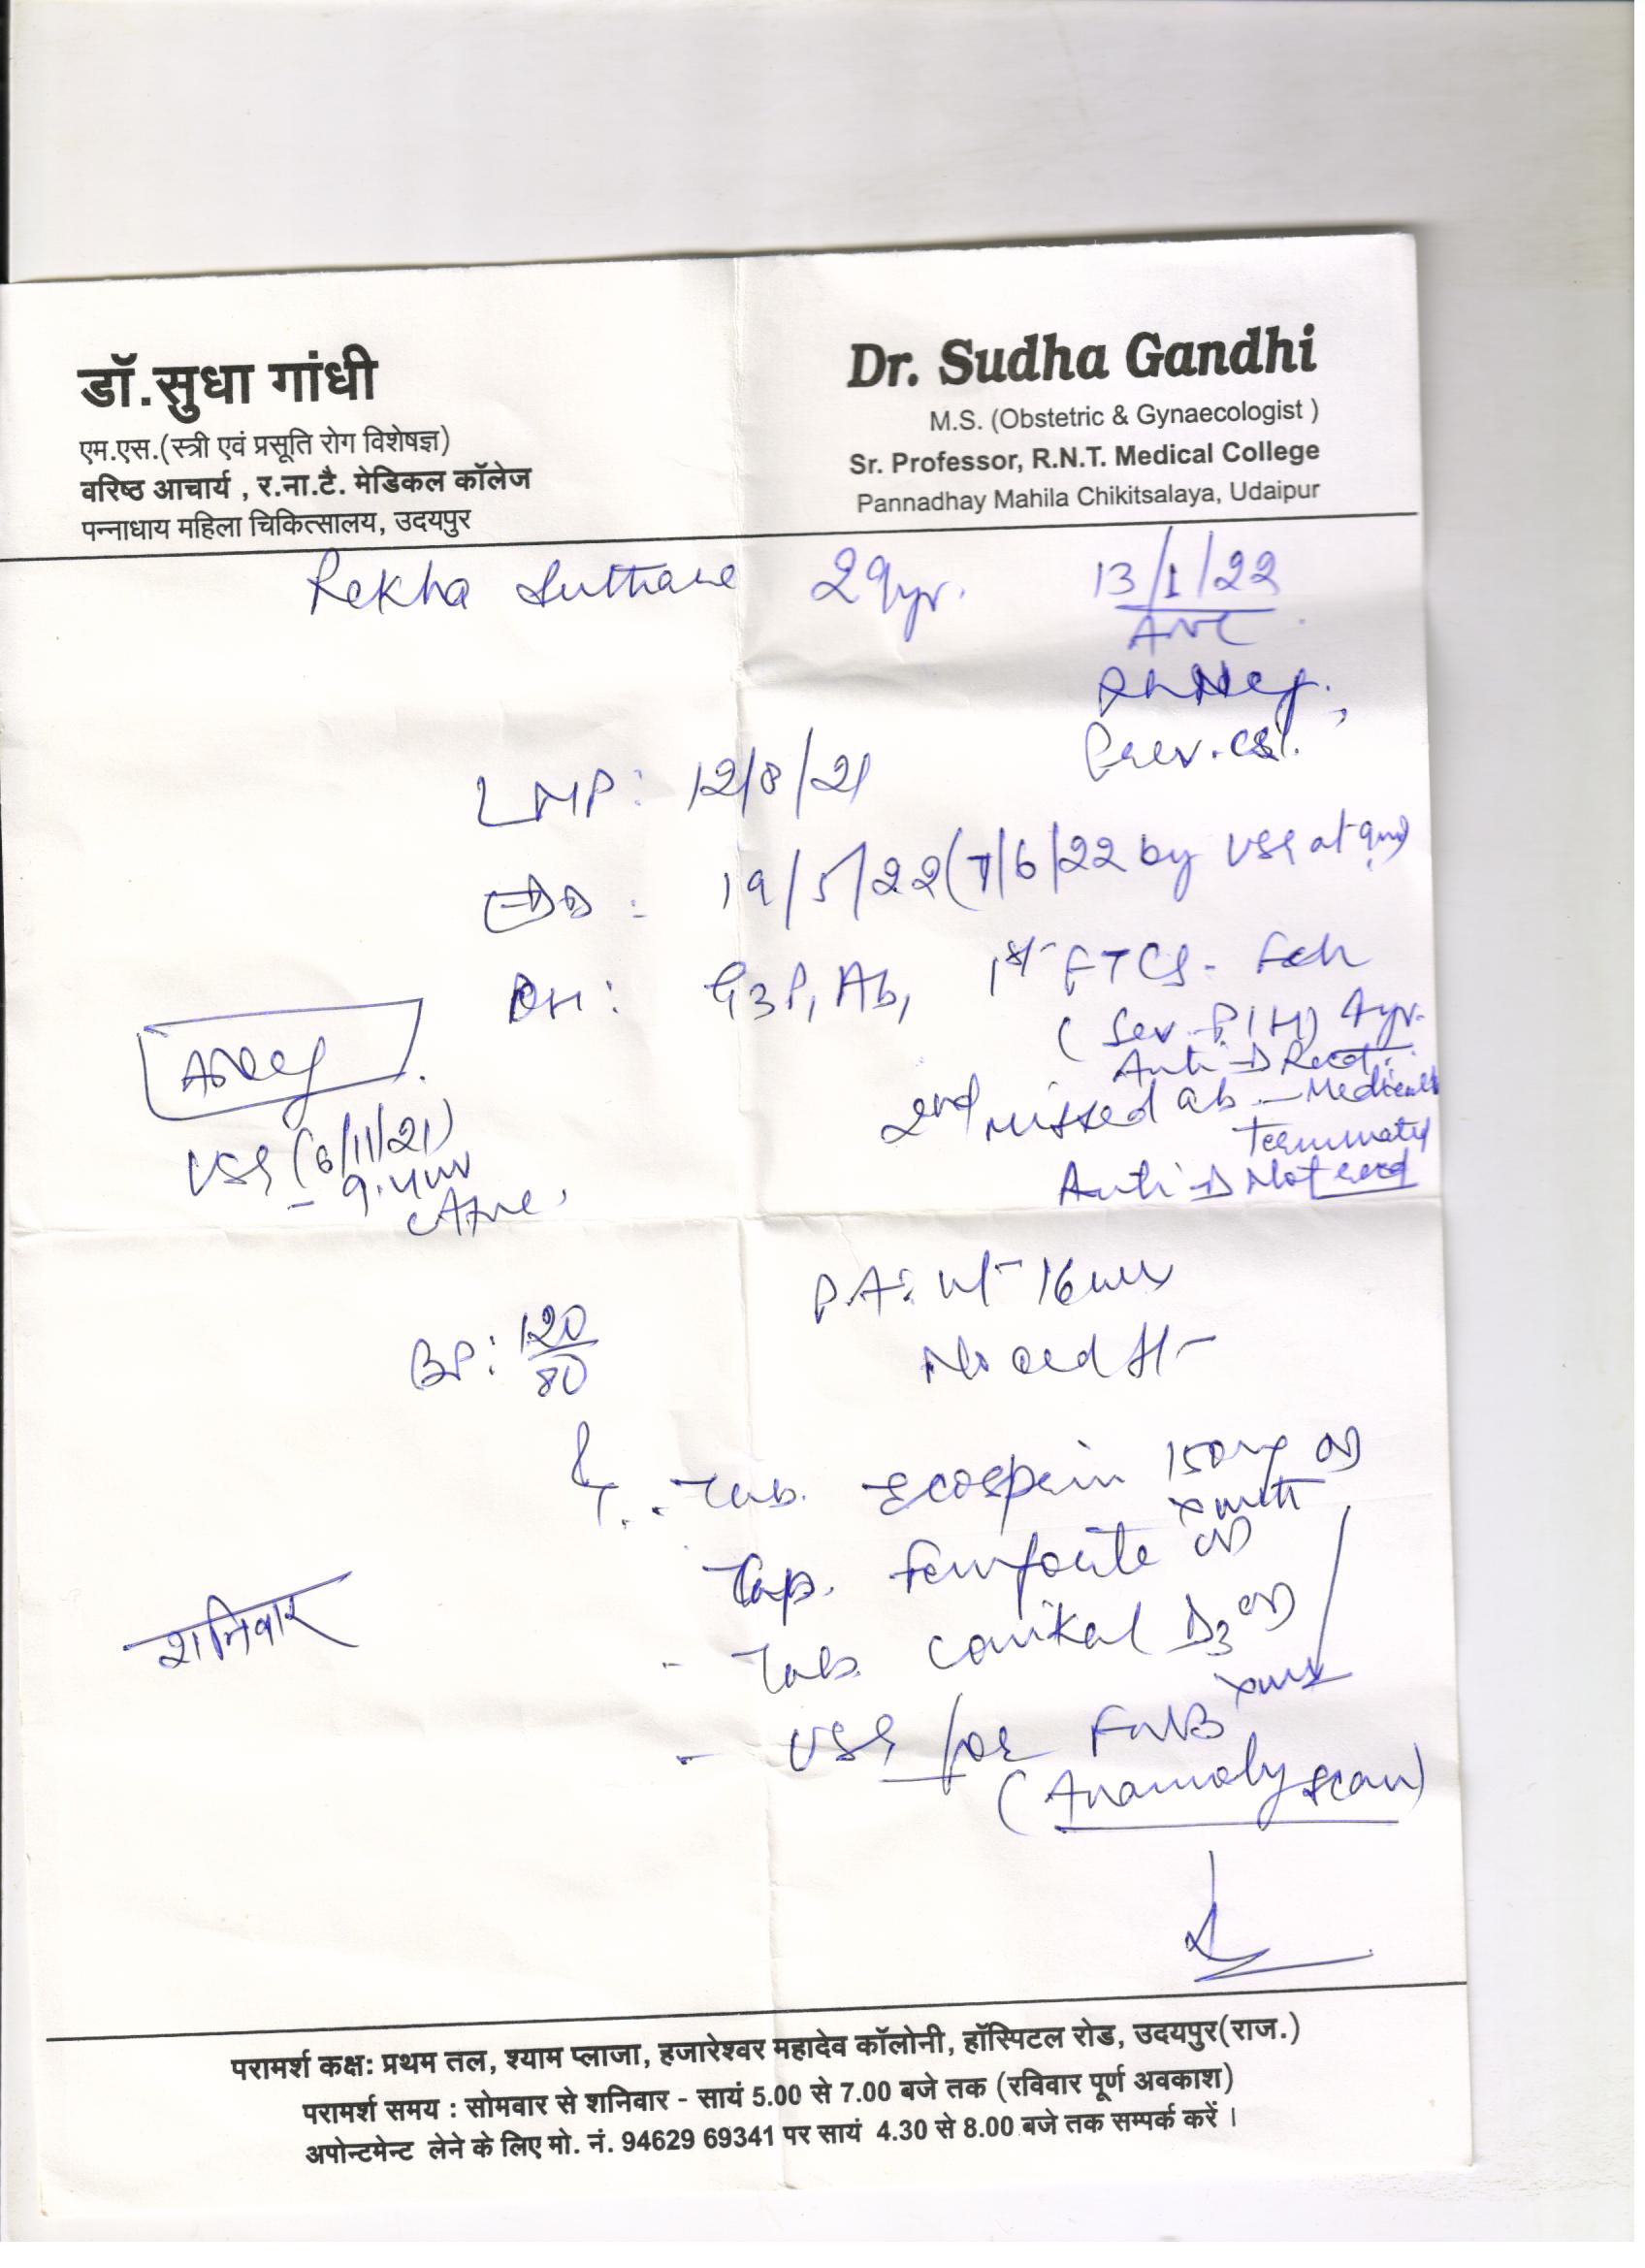 डॉ.सुधा गांधी
एम.एस.(स्त्री एवं प्रसूति रोग विशेषज्ञ)
वरिष्ठ आचार्य , र.ना.टै. मेडिकल कॉलेज
पन्नाधाय महिला चिकित्सालय, उदयपुर
Dr. Sudha Gandhi
M.S. (Obstetric & Gynaecologist )
Sr. Professor, R.N.T. Medical College
Pannadhay Mahila Chikitsalaya, Udaipur
Rekha 29yr. 13/1/22
ANC
Rh Neg.,
Prev. CS
LMP: 12/8/21
EDD: 19/5/22 (7/6/22 by USG at
OH: G3P1Ab1 1st FTCS - Feh
(Sev. PIH) 4yr.
Anti D
2nd missed ab. - Medically
Terminated
Anti D Not
USG (6/11/21)
- 9.4
PA: ut 16
No
BP: 120/80
- Tab. Ecosprin 150mg OD
Cap. OD
- Tab. D3 OD
शनिवार
- USG for FWB
(Anamoly scan)
परामर्श कक्ष: प्रथम तल, श्याम प्लाजा, हजारेश्वर महादेव कॉलोनी, हॉस्पिटल रोड, उदयपुर(राज.)
परामर्श समय : सोमवार से शनिवार - सायं 5.00 से 7.00 बजे तक (रविवार पूर्ण अवकाश)
अपोन्टमेन्ट लेने के लिए मो. नं. 94629 69341 पर सायं 4.30 से 8.00 बजे तक सम्पर्क करें ।